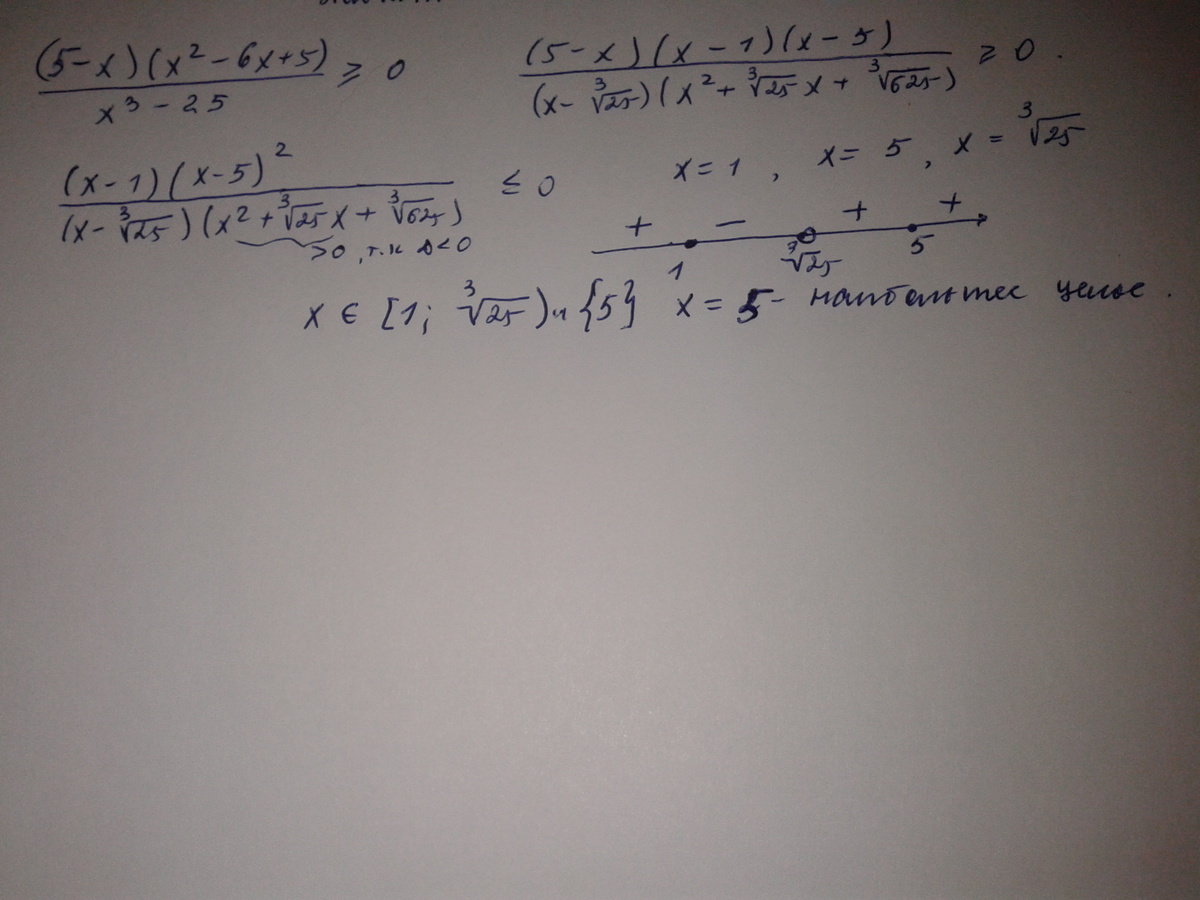 (5-x)(x²-6x+5)/(x³-25) ≥ 0    (5-x)(x-1)(x-5)/((x-∛25)(x²+∛25x+∛625)) ≥ 0.
(x-1)(x-5)²/((x-∛25)(x²+∛25x+∛625)) ≤ 0    x=1, x=5, x=∛25
>0, т.к D<0
+ - + +
1 ∛25 5
x ∈ [1; ∛25) и {5}    x = 5 - наибольшее целое.